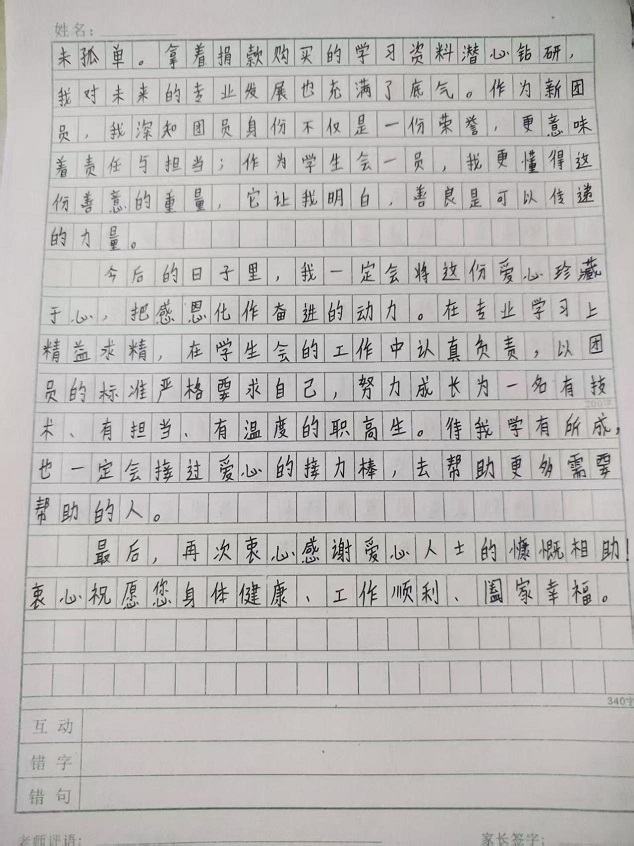 姓名:
未孤单。拿着捐款购买的学习资料潜心钻研,
我对未来的专业发展也充满了底气。作为新团
员,我深知团员身份不仅是一份荣誉,更意味
着责任与担当;作为学生会一员,我更懂得这
份善意的重量,它让我明白,善良是可以传递
的力量。
今后的日子里,我一定会将这份爱心珍藏
于心,把感恩化作奋进的动力。在专业学习上
精益求精,在学生会的工作中认真负责,以团
员的标准严格要求自己,努力成长为一名有技
200字
术、有担当、有温度的职高生。待我学有所成,
也一定会接过爱心的接力棒,去帮助更多需要
帮助的人。
最后,再次衷心感谢爱心人士的慷慨相助!
衷心祝愿您身体健康、工作顺利、阖家幸福。
340字
互动
错字
错句
老师评语: 家长签字: